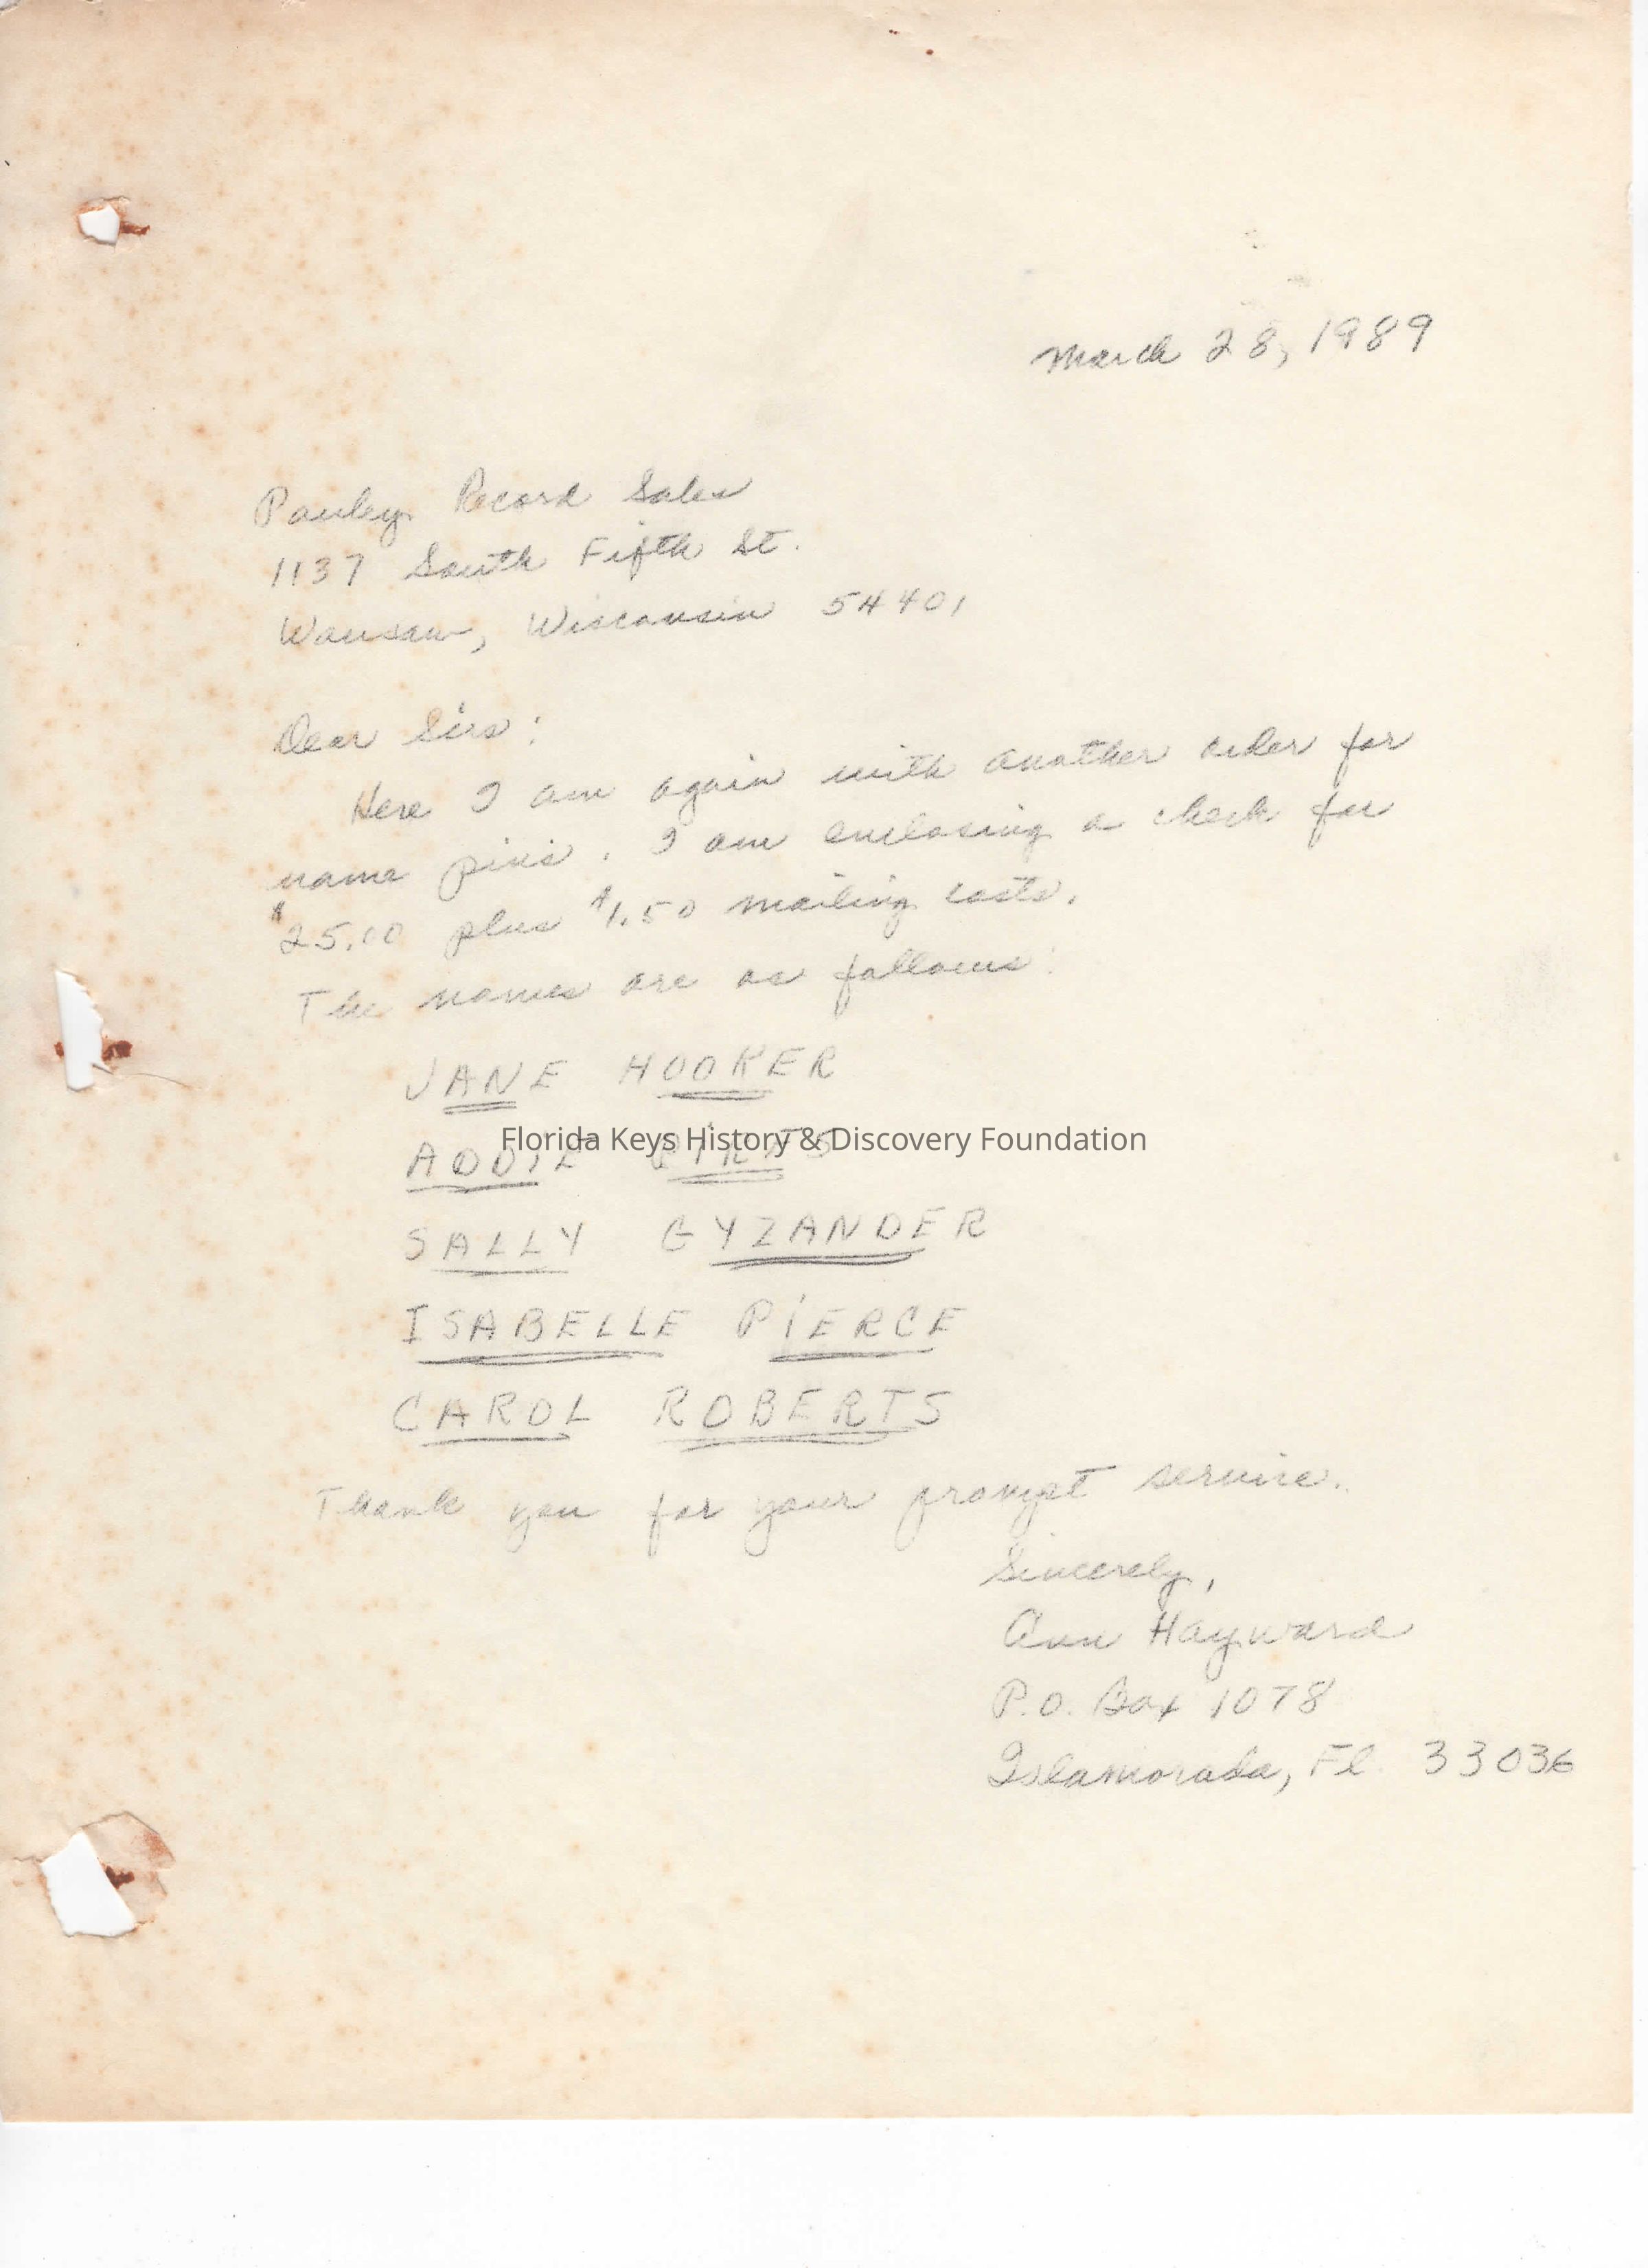 March 28, 1989
Pauley Record Sales
1137 South Fifth St.
Wausau, Wisconsin 54401
Dear Sirs:
Here I am again with another order for
name pins. I am enclosing a check for
$25.00 plus $1.50 mailing costs.
The names are as follows:
JANE HOOKER
Florida Keys History & Discovery Foundation
ADDIE
SALLY GYZANDER
ISABELLE PIERCE
CAROL ROBERTS
Thank you for your prompt service.
Sincerely,
Ann Hayward
P.O. Box 1078
Islamorada, Fl. 33036